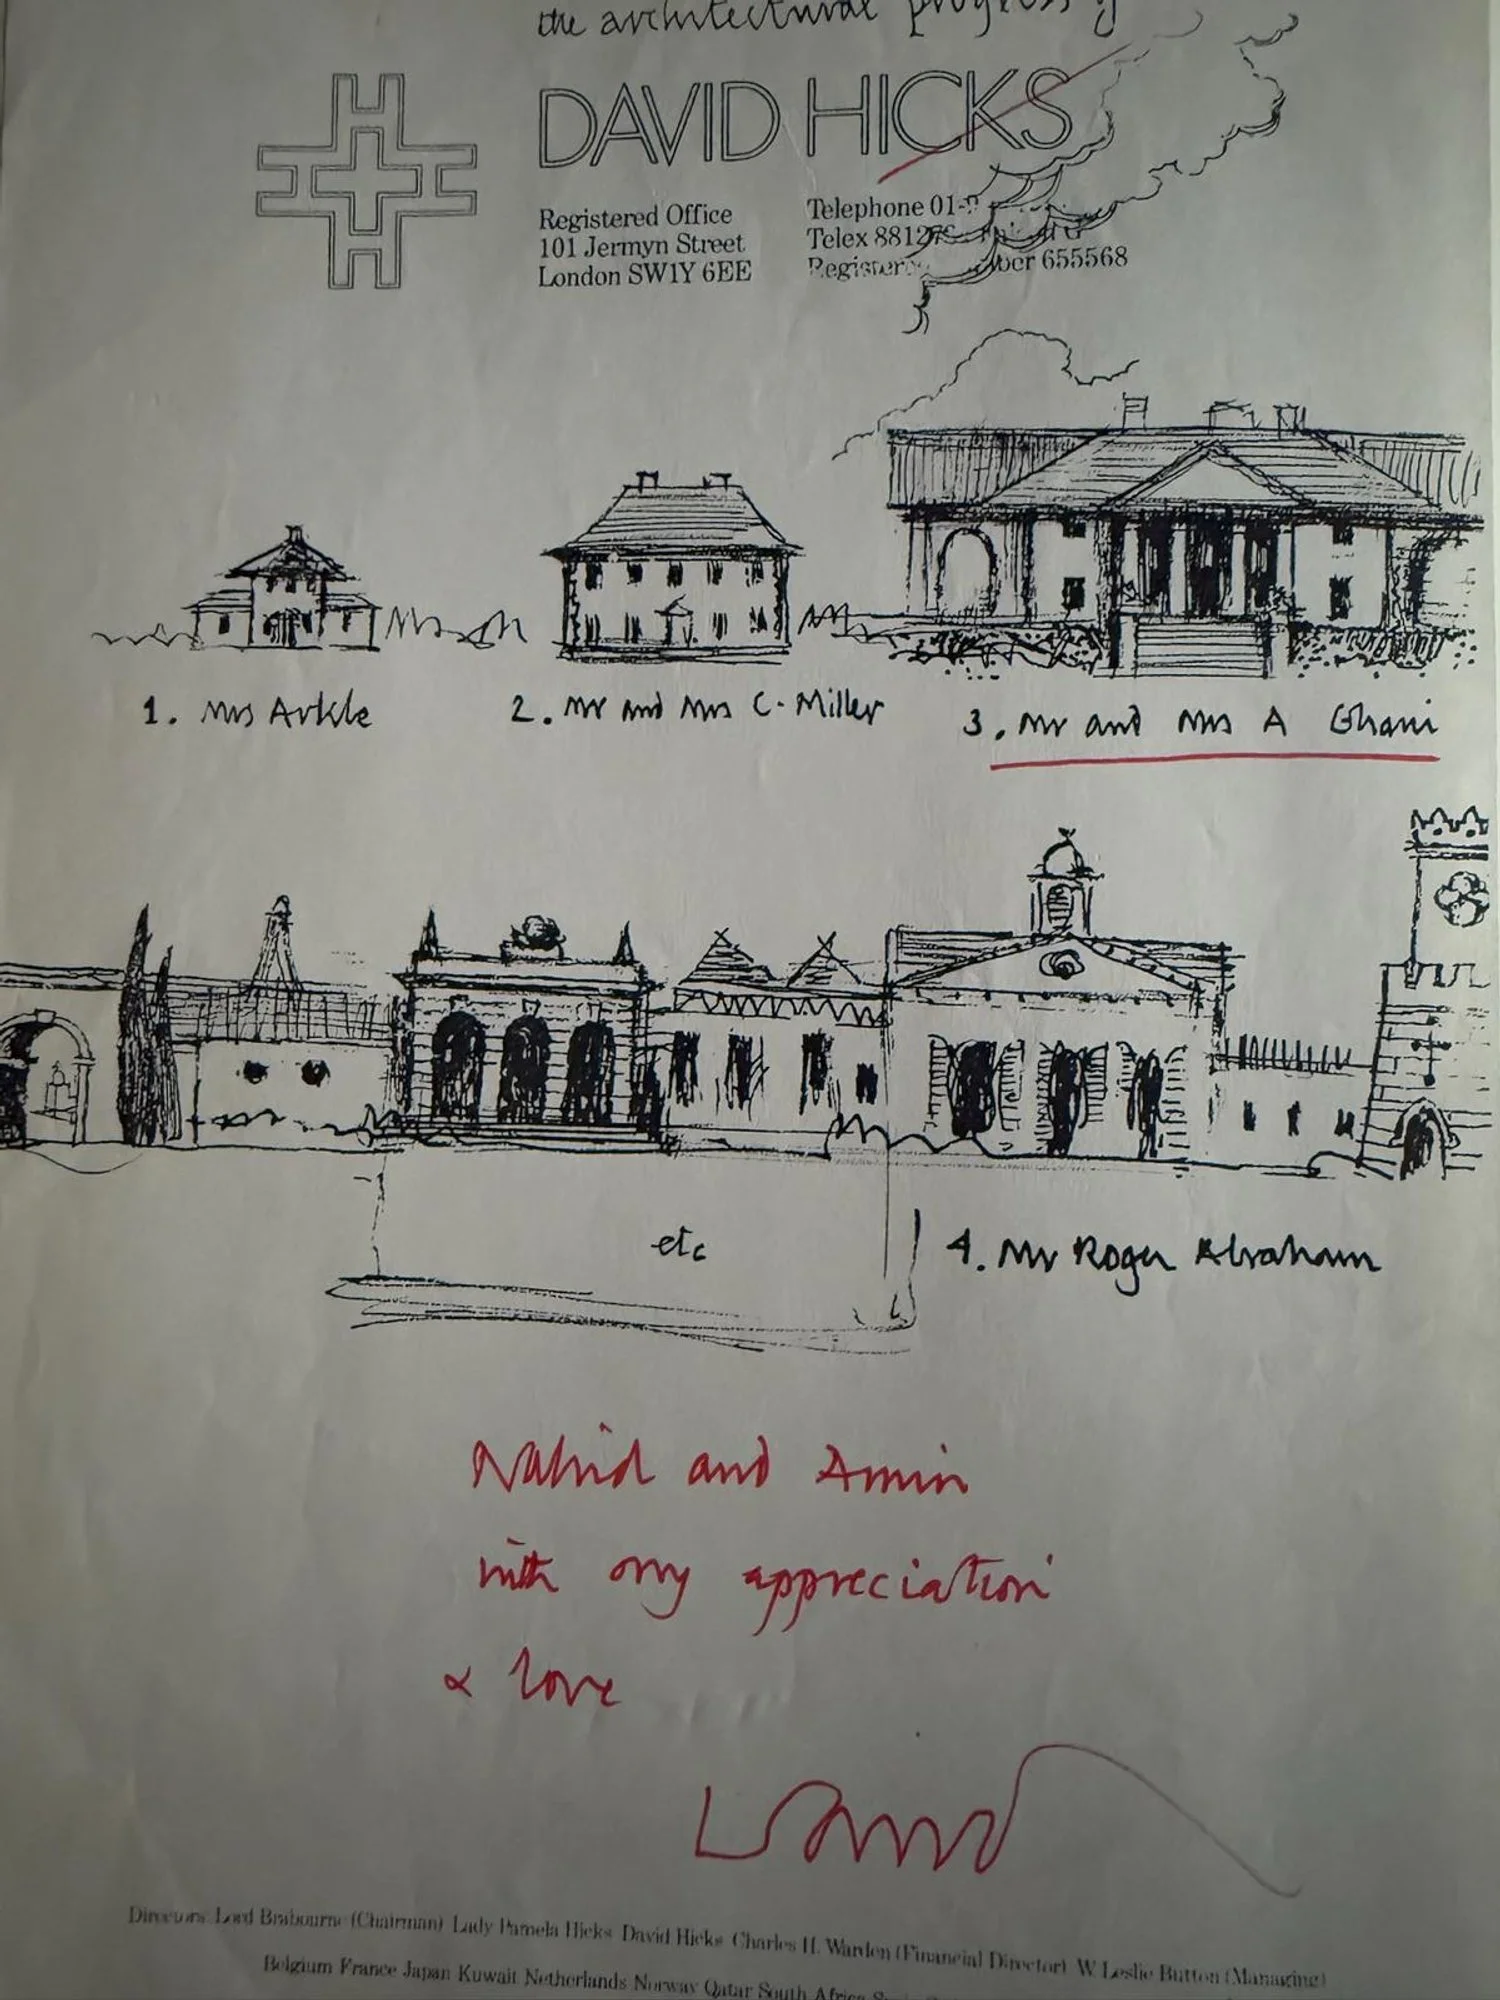 the architectural progress of
DAVID HICKS
Registered Office
101 Jermyn Street
London SW1Y 6EE
Telephone 01-
Telex 88127
Registered number 655568
1. Mrs Arkle
2. Mr and Mrs C. Miller
3. Mr and Mrs A Ghani
etc
4. Mr Roger Abraham
Nahid and Amin
with my appreciation
& love
David
Directors: Lord Brabourne (Chairman) Lady Pamela Hicks David Hicks Charles H. Warden (Financial Director) W. Leslie Button (Managing)
Belgium France Japan Kuwait Netherlands Norway Qatar South Africa